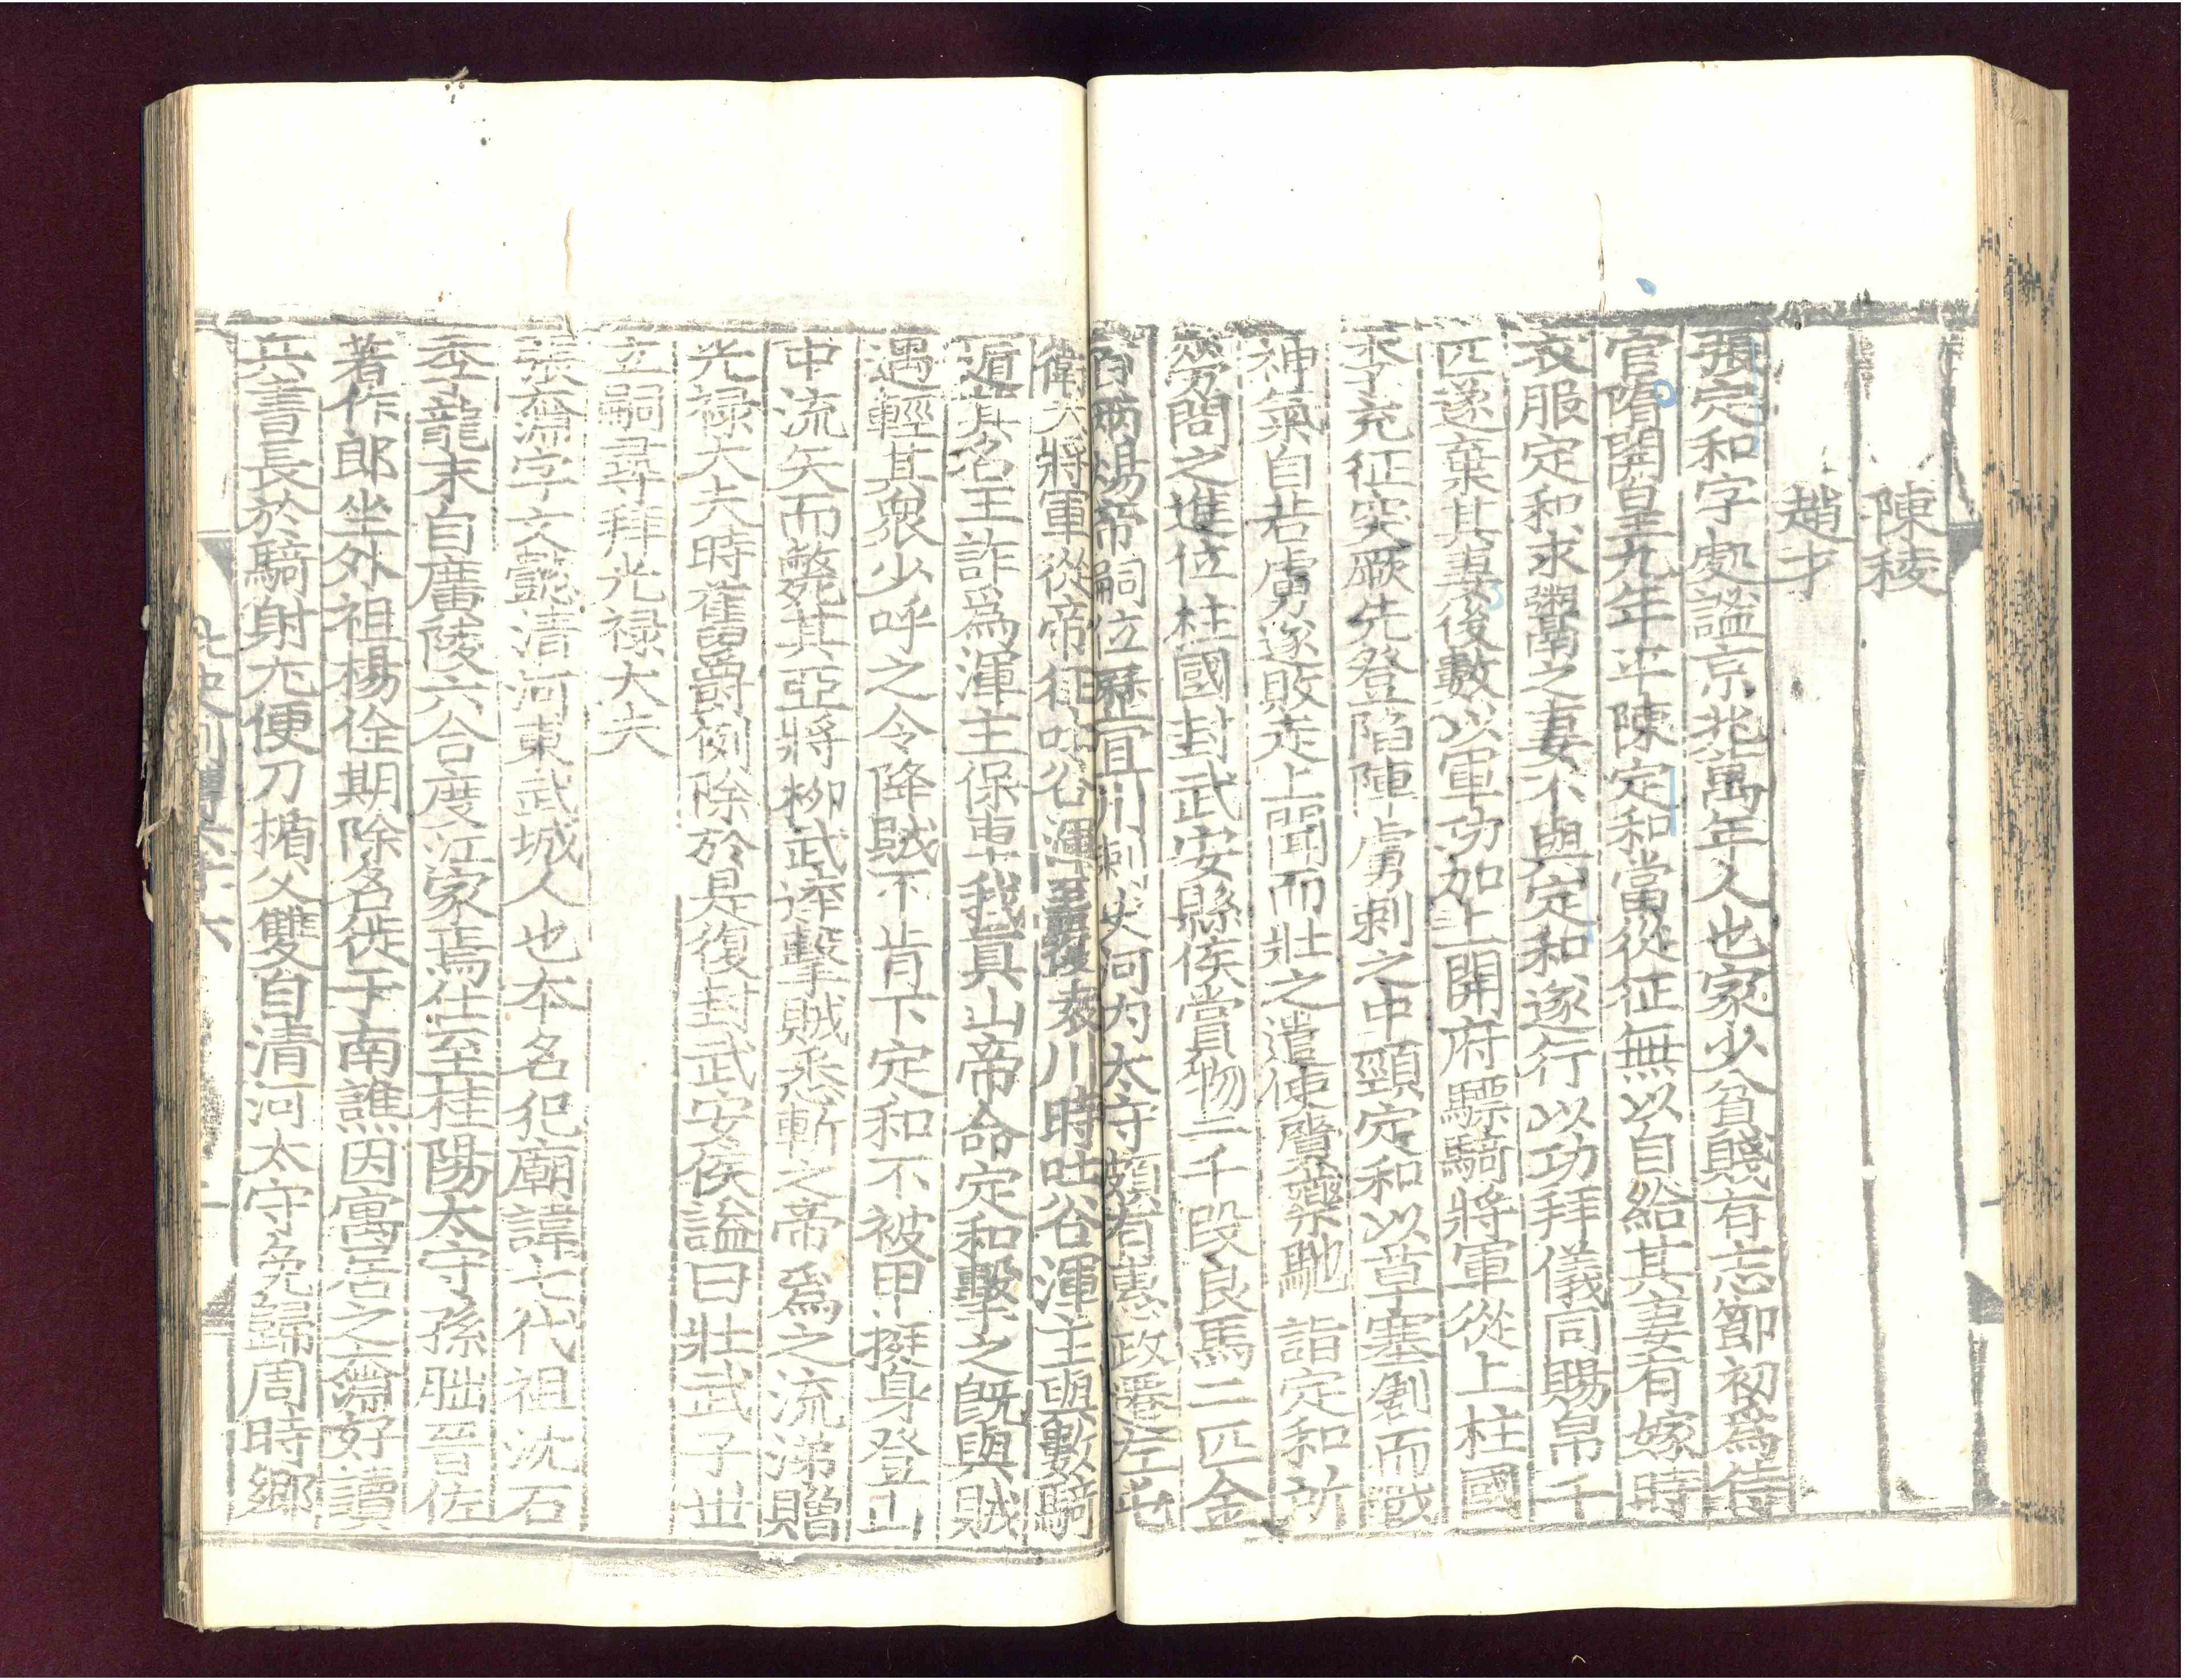 陳稜
趙才
張定和字處謐京兆萬年人也家少貧賤有志節初爲侍
官隋開皇九年平陳定和當從征無以自給其妻有嫁時
衣服定和求鬻之妻不與定和遂行以功拜儀同賜帛千
匹遂棄其妻後數以軍功加上開府驃騎將軍從上柱國
李充征突厥先登陷陣虜刺之中頸定和以草塞創而戰
神氣自若虜遂敗走上聞而壯之遣使賫藥馳詣定和所
勞問之進位柱國封武安縣侯賞物二千段良馬二匹金
百兩煬帝嗣位歷宜州刺史河內太守頗有惠政遷左屯
衛大將軍從帝征吐谷渾至覆袁川時吐谷渾主與數騎
遁其名王詐爲渾主保車我眞山帝命定和擊之旣與賊
遇輕其衆少呼之令降賊不肯下定和不被甲挺身登山
中流矢而斃其亞將柳武建擊賊悉斬之帝爲之流涕贈
光祿大夫時舊爵例除於是復封武安侯謚曰壯武子世
立嗣尋拜光祿大夫
張奫字文懿淸河東武城人也本名犯廟諱七代祖沈石
季龍末自廣陵六合度江家焉仕至桂陽太守孫昢晉佐
著作郎坐外祖楊佺期除名徙于南譙因寓居之奫好讀
兵書長於騎射尤便刀楯父雙自淸河太守免歸周時鄉
北史列傳六十六